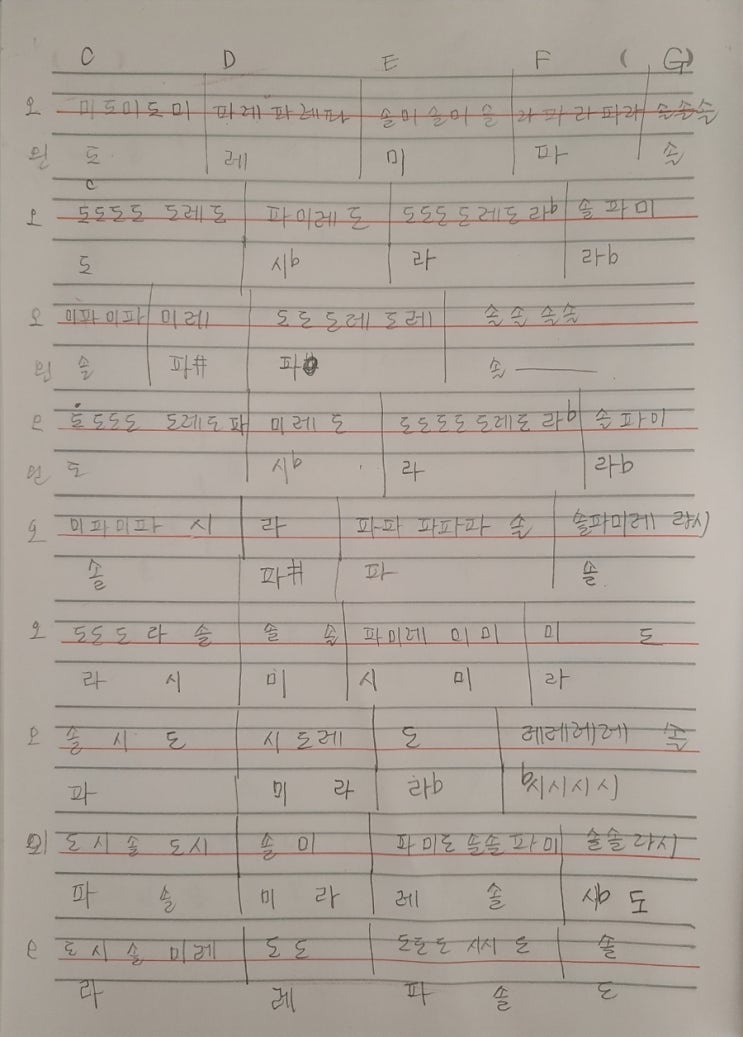 C D E F ( G)
오 미도미도미 파레파레파 솔미솔미솔 라파라파라 솔솔솔
왼 도 레 미 파 솔
C
오 도도도도 도레도 파미레도 도도도도도레도 라b 솔파미
도 시b 라 라b
오 미파미파 미레 도도도레도레 솔솔솔솔
왼 솔 파# 파 솔
오 도도도도 도레도파 미레도 도도도도도도레도 라b 솔파미
왼 도 시b 라 라b
오 미파미파 시 라 파파 파파파 솔 솔파미레 라시
솔 파# 파 솔
오 도도도 라 솔 솔 솔 파미레 미미 미 도
라 시 미 시 미 라
오 솔 시 도 시도레 도 레레레레 솔
파 미 라 라b b시시시시
오 도시솔 도시 솔미 파미도솔솔파미 솔솔라시
파 솔 미 라 레 솔 시b 도
오 도시솔 미레 도도 도도도 시시 도 솔
라 레 파 솔 도